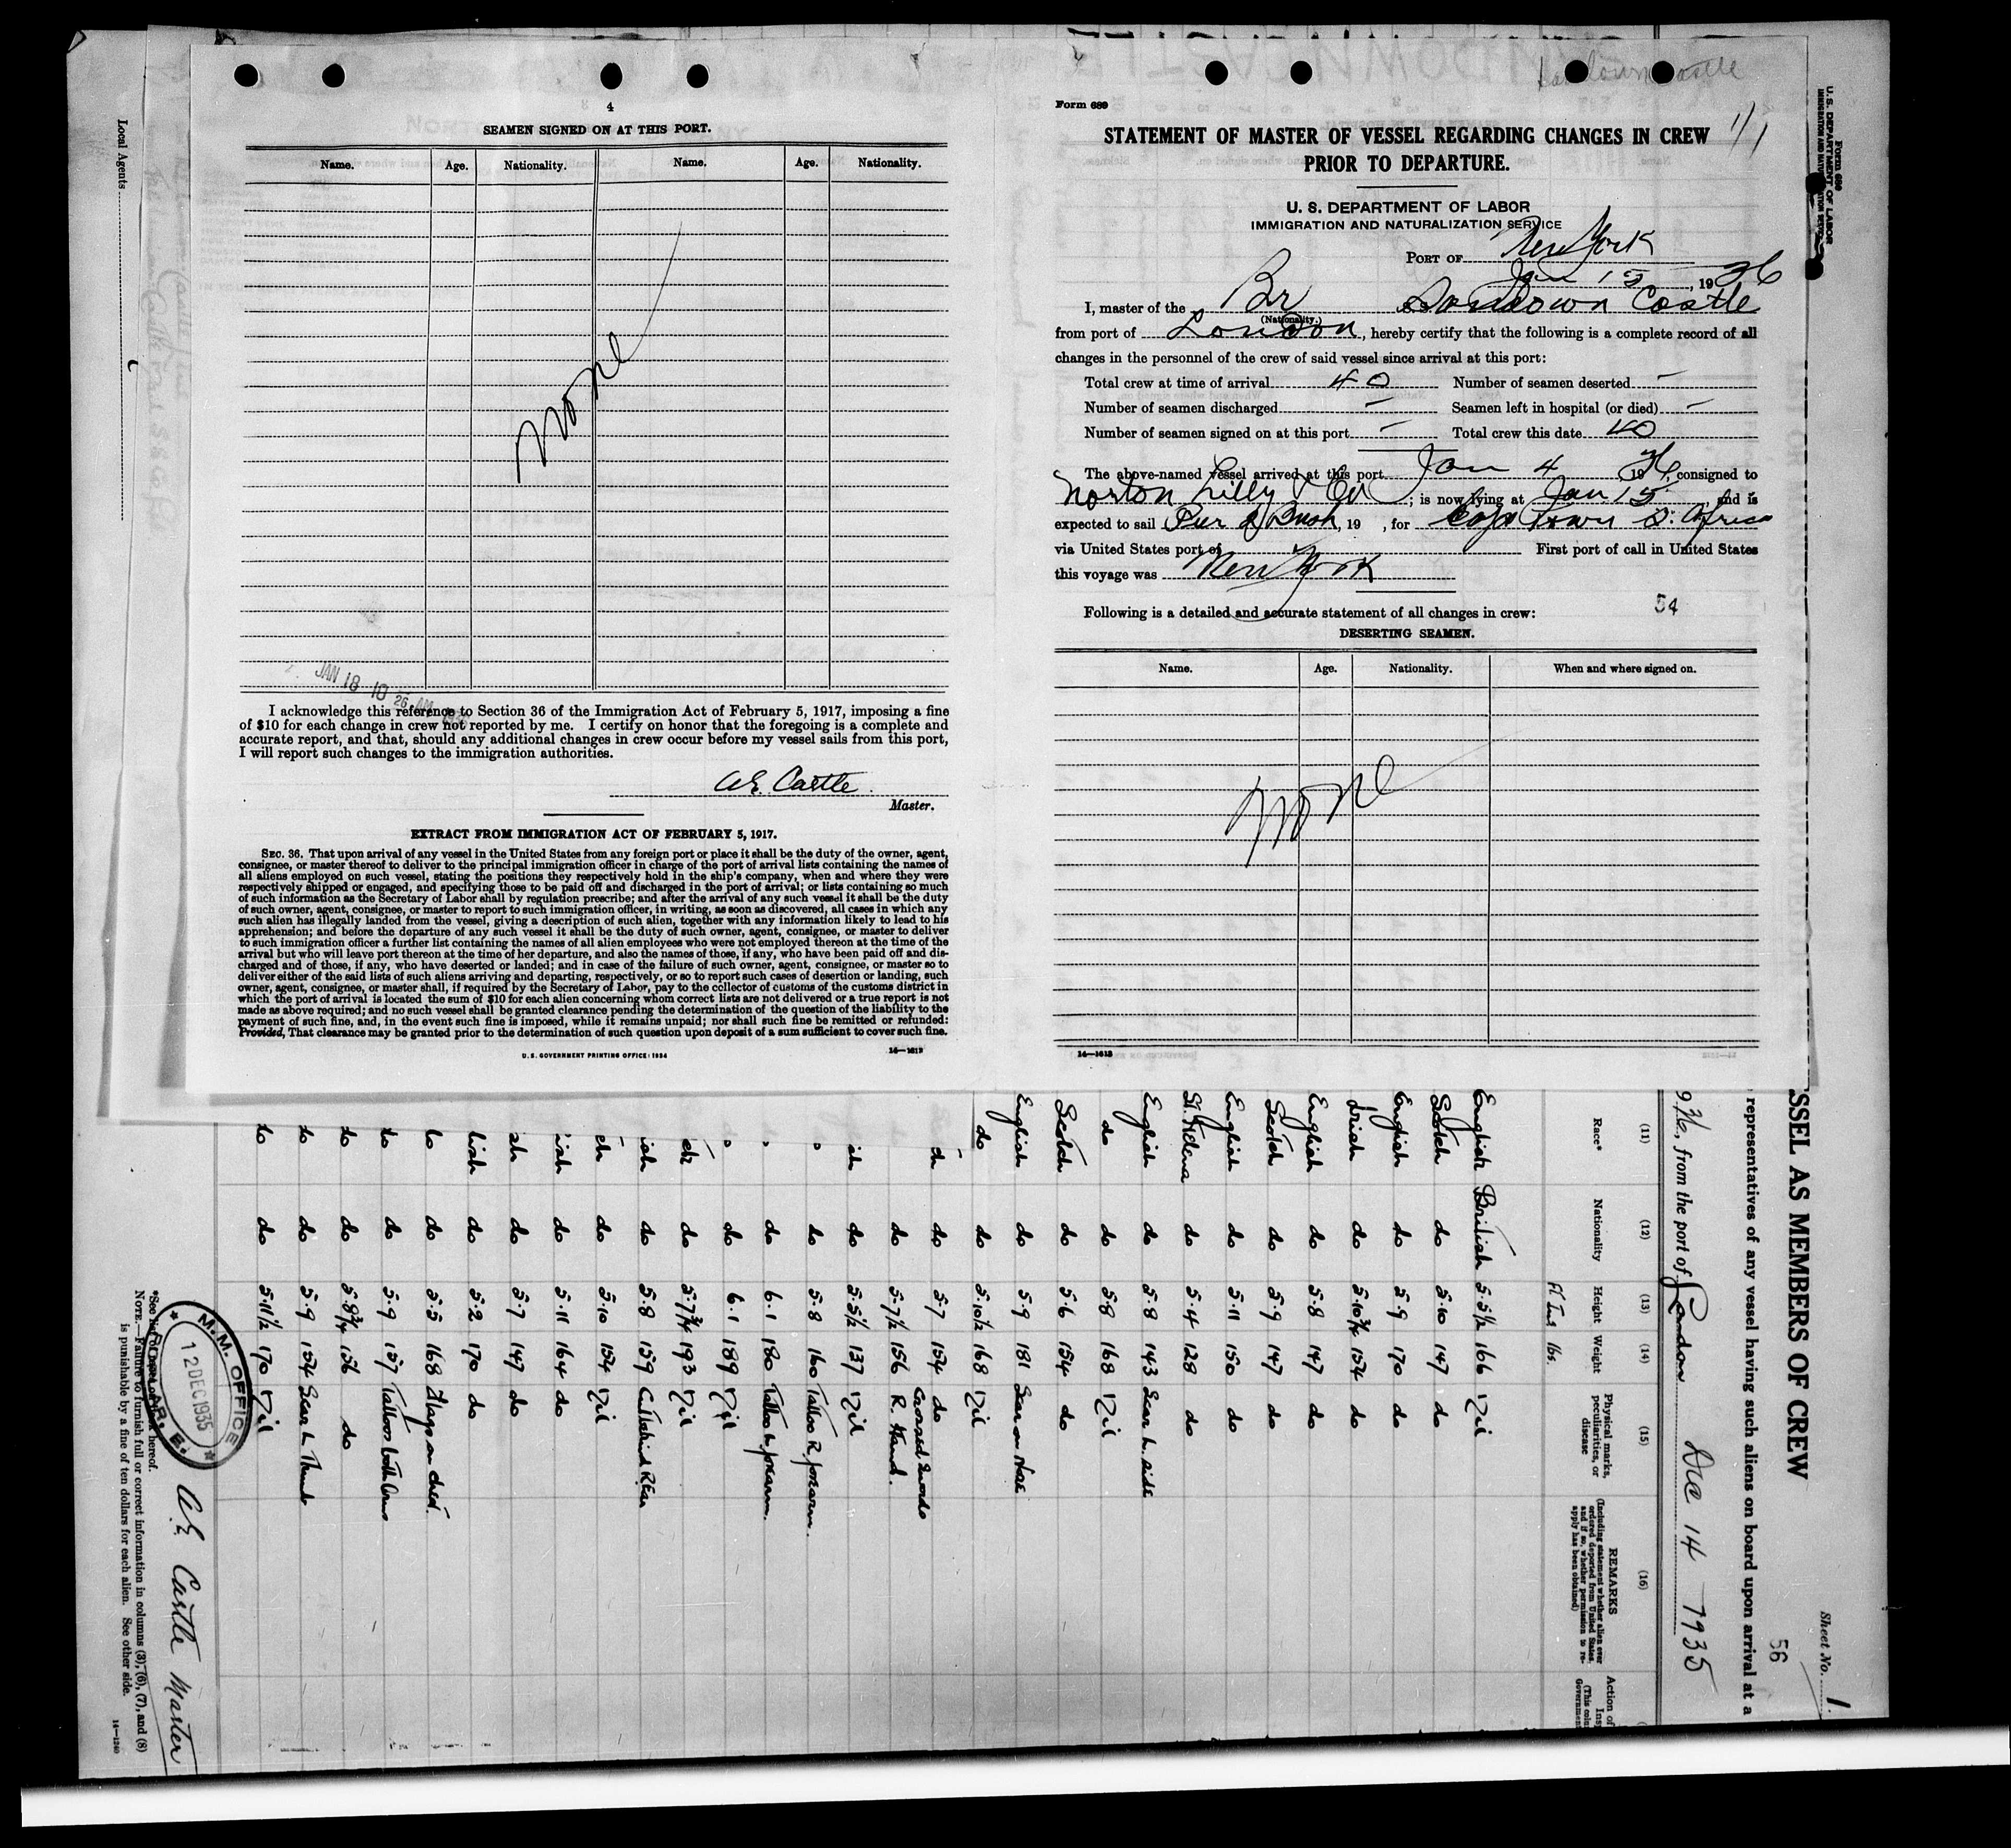 4
SEAMEN SIGNED ON AT THIS PORT.
Name. Age. Nationality. Name. Age. Nationality.
None
JAN 18 10 26 AM
I acknowledge this reference to Section 36 of the Immigration Act of February 5, 1917, imposing a fine
of $10 for each change in crew not reported by me. I certify on honor that the foregoing is a complete and
accurate report, and that, should any additional changes in crew occur before my vessel sails from this port,
I will report such changes to the immigration authorities.
A.E. Castle.
Master.
EXTRACT FROM IMMIGRATION ACT OF FEBRUARY 5, 1917.
SEC. 36. That upon arrival of any vessel in the United States from any foreign port or place it shall be the duty of the owner, agent,
consignee, or master thereof to deliver to the principal immigration officer in charge of the port of arrival lists containing the names of
all aliens employed on such vessel, stating the positions they respectively hold in the ship's company, when and where they were
respectively shipped or engaged, and specifying those to be paid off and discharged in the port of arrival; or lists containing so much
of such information as the Secretary of Labor shall by regulation prescribe; and after the arrival of any such vessel it shall be the duty
of such owner, agent, consignee, or master to report to such immigration officer, in writing, as soon as discovered, all cases in which any
such alien has illegally landed from the vessel, giving a description of such alien, together with any information likely to lead to his
apprehension; and before the departure of any such vessel it shall be the duty of such owner, agent, consignee, or master to deliver
to such immigration officer a further list containing the names of all alien employees who were not employed thereon at the time of the
arrival but who will leave port thereon at the time of her departure, and also the names of those, if any, who have been paid off and dis-
charged and of those, if any, who have deserted or landed; and in case of the failure of such owner, agent, consignee, or master so to
deliver either of the said lists of such aliens arriving and departing, respectively, or so to report such cases of desertion or landing, such
owner, agent, consignee, or master shall, if required by the Secretary of Labor, pay to the collector of customs of the customs district in
which the port of arrival is located the sum of $10 for each alien concerning whom correct lists are not delivered or a true report is not
made as above required; and no such vessel shall be granted clearance pending the determination of the question of the liability to the
payment of such fine, and, in the event such fine is imposed, while it remains unpaid; nor shall such fine be remitted or refunded:
Provided, That clearance may be granted prior to the determination of such question upon deposit of a sum sufficient to cover such fine.
U. S. GOVERNMENT PRINTING OFFICE: 1934 14—1613
Local Agents
Form 689
STATEMENT OF MASTER OF VESSEL REGARDING CHANGES IN CREW
PRIOR TO DEPARTURE.
1/1
U. S. DEPARTMENT OF LABOR
IMMIGRATION AND NATURALIZATION SERVICE
PORT OF New York
Jan 15, 1936
I, master of the Br S.S. Sandown Castle
(Nationality.)
from port of London, hereby certify that the following is a complete record of all
changes in the personnel of the crew of said vessel since arrival at this port:
Total crew at time of arrival 40 Number of seamen deserted —
Number of seamen discharged — Seamen left in hospital (or died) —
Number of seamen signed on at this port — Total crew this date 40
The above-named vessel arrived at this port Jan 4 1936, consigned to
Norton Lilly & Co, is now lying at Jan 15, and is
expected to sail Pier 2 Bush, 19 , for Cape Town S. Africa
via United States port of First port of call in United States
this voyage was New York
Following is a detailed and accurate statement of all changes in crew:
54
DESERTING SEAMEN.
Name. Age. Nationality. When and where signed on.
None
14—1613
Form 689
U. S. DEPARTMENT OF LABOR
SSEL AS MEMBERS OF CREW
Sheet No. 1
56
representatives of any vessel having such aliens on board upon arrival at a
936, from the port of London Dec 14 1935
(11) (12) (13) (14) (15) (16)
Race* Nationality Height Weight Physical marks, peculiarities, or disease REMARKS
(Including statement whether alien ever ordered deported from United States, and if so, whether permission to re-apply has been obtained)
Ft Ins lbs.
English British 5.5½ 166 Nil
Scotch do 5.10 147 do
English do 5.9 170 do
Irish do 5.10¾ 154 do
English do 5.8 147 do
Scotch do 5.9 147 do
English do 5.11 150 do
St. Helena do 5.4 128 do
English do 5.8 143 Scar L. side
do do 5.8 168 Nil
Scotch do 5.6 154 do
English do 5.9 181 Scar on Nose
do do 5.10½ 168 Nil
do 5.7 154 do
do 5.7½ 156 Crossed Swords R. Hand.
do 5.5½ 137 Nil
do 5.8 160 Tattoo R. forearm.
do 6.1 180 Tattoo L. forearm.
do 6.1 189 Nil
do 5.7¾ 193 Nil
do 5.8 159 Cut behind R. Ear
do 5.10 154 Nil
do 5.11 164 do
do 5.7 147 do
do 5.2 170 do
do 5.5 168 Flags on chest.
do 5.9 157 Tattoos both arms
do 5.8¾ 156 do
do 5.9 154 Scar L Thumb
do 5.11½ 170 Nil
M.M. OFFICE
12 DEC 1935
A.E. Castle Master
NOTE.—Failure to furnish full or correct information in columns (3), (6), (7), and (8)
is punishable by a fine of ten dollars for each alien. See other side.
14—1240